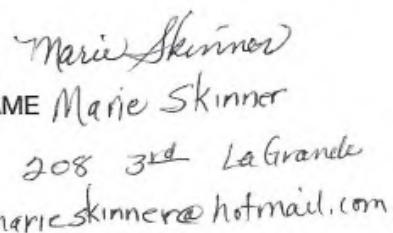 Marie Skinner
AME Marie Skinner
208 3rd La Grande
marieskinner@hotmail.com